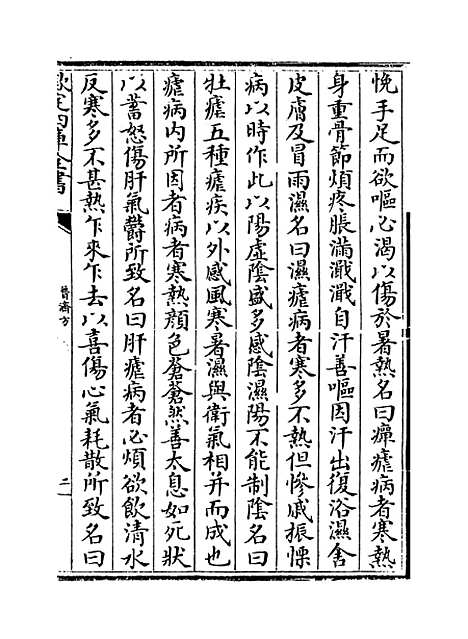 悗手足而欲嘔必渴以傷於暑熱名曰癉瘧病者寒熱
身重骨節煩疼脹滿濈濈自汗善嘔因汗出復浴濕舍
皮膚及冒雨濕名曰濕瘧病者寒多不熱但慘戚振慄
病以時作此以陽虛陰盛多感陰濕陽不能制陰名曰
牡瘧五種瘧疾以外感風寒暑濕與衛氣相并而成也
瘧病内所因者病者寒熱顔色蒼蒼然善太息如死狀
以蓄怒傷肝氣欝所致名曰肝瘧病者心煩欲飲清水
反寒多不甚熱乍來乍去以喜傷心氣耗散所致名曰
欽定四庫全書
普濟方
二